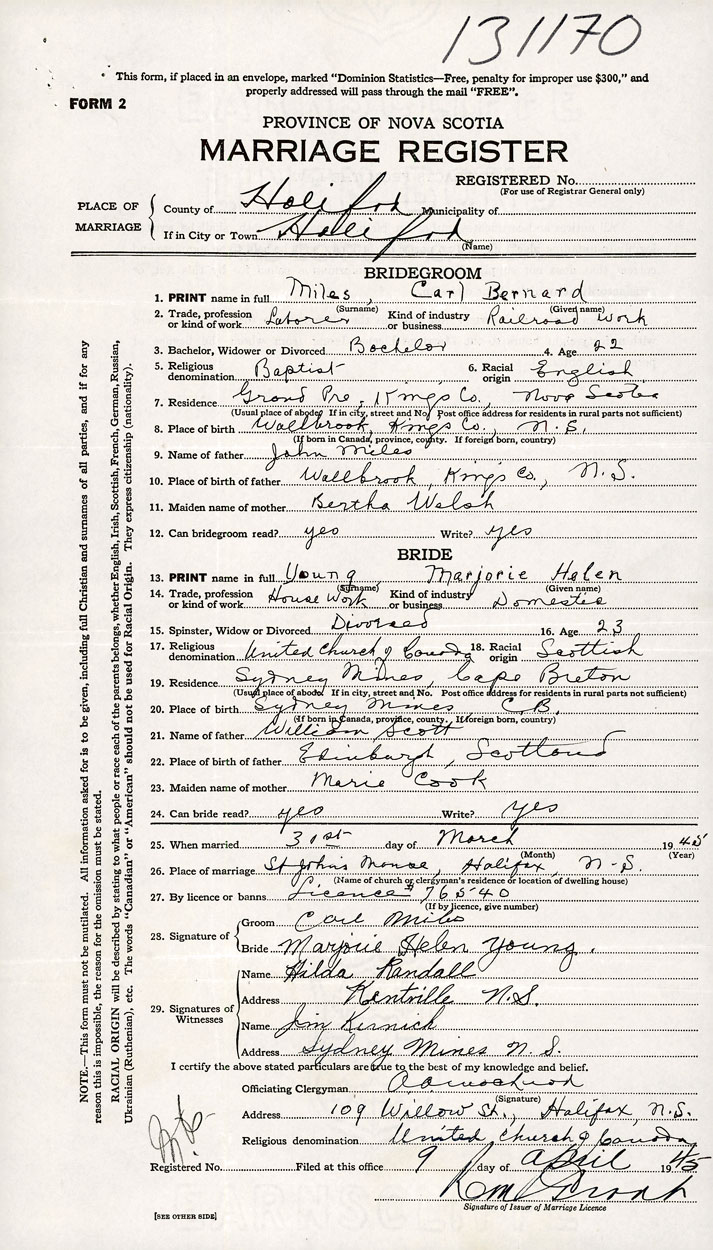 131170
This form, if placed in an envelope, marked “Dominion Statistics—Free, penalty for improper use $300,” and
properly addressed will pass through the mail “FREE”.
FORM 2
PROVINCE OF NOVA SCOTIA
MARRIAGE REGISTER
REGISTERED No.
(For use of Registrar General only)
PLACE OF MARRIAGE
County of Halifax Municipality of
If in City or Town Halifax
(Name)
BRIDEGROOM
1. PRINT name in full Miles, Carl Bernard
(Surname) (Given name)
2. Trade, profession or kind of work Laborer Kind of industry or business Railroad Work
3. Bachelor, Widower or Divorced Bachelor 4. Age 22
5. Religious denomination Baptist 6. Racial origin English
7. Residence Grand Pre, Kings Co., Nova Scotia
(Usual place of abode. If in city, street and No. Post office address for residents in rural parts not sufficient)
8. Place of birth Wallbrook, Kings Co., N.S.
(If born in Canada, province, county. If foreign born, country)
9. Name of father John Miles
10. Place of birth of father Wallbrook, Kings Co., N.S.
11. Maiden name of mother Bertha Welsh
12. Can bridegroom read? yes Write? yes
BRIDE
13. PRINT name in full Young, Marjorie Helen
(Surname) (Given name)
14. Trade, profession or kind of work House Work Kind of industry or business Domestic
15. Spinster, Widow or Divorced Divorced 16. Age 23
17. Religious denomination United Church of Canada 18. Racial origin Scottish
19. Residence Sydney Mines, Cape Breton
(Usual place of abode. If in city, street and No. Post office address for residents in rural parts not sufficient)
20. Place of birth Sydney Mines, C.B.
(If born in Canada, province, county. If foreign born, country)
21. Name of father William Scott
22. Place of birth of father Edinburgh, Scotland
23. Maiden name of mother Marie Cook
24. Can bride read? yes Write? yes
25. When married 31st day of March 1945
(Month) (Year)
26. Place of marriage St John's Manse, Halifax, N.S.
(Name of church or clergyman's residence or location of dwelling house)
27. By licence or banns Licence # 76540
(If by licence, give number)
28. Signature of
Groom Carl Miles
Bride Marjorie Helen Young.
29. Signatures of Witnesses
Name Hilda Randall
Address Kentville N.S.
Name Jim
Address Sydney Mines N.S.
I certify the above stated particulars are true to the best of my knowledge and belief.
Officiating Clergyman
(Signature)
Address 109 Willow St., Halifax, N.S.
Religious denomination United Church of Canada
Registered No. Filed at this office 9 day of April 1945
Signature of Issuer of Marriage Licence
[SEE OTHER SIDE]
NOTE.—This form must not be mutilated. All information asked for is to be given, including full Christian and surnames of all parties, and if for any
reason this is impossible, the reason for the omission must be stated.
RACIAL ORIGIN will be described by stating to what people or race each of the parents belongs, whether English, Irish, Scottish, French, German, Russian,
Ukrainian (Ruthenian), etc. The words “Canadian” or “American” should not be used for Racial Origin. They express citizenship (nationality).